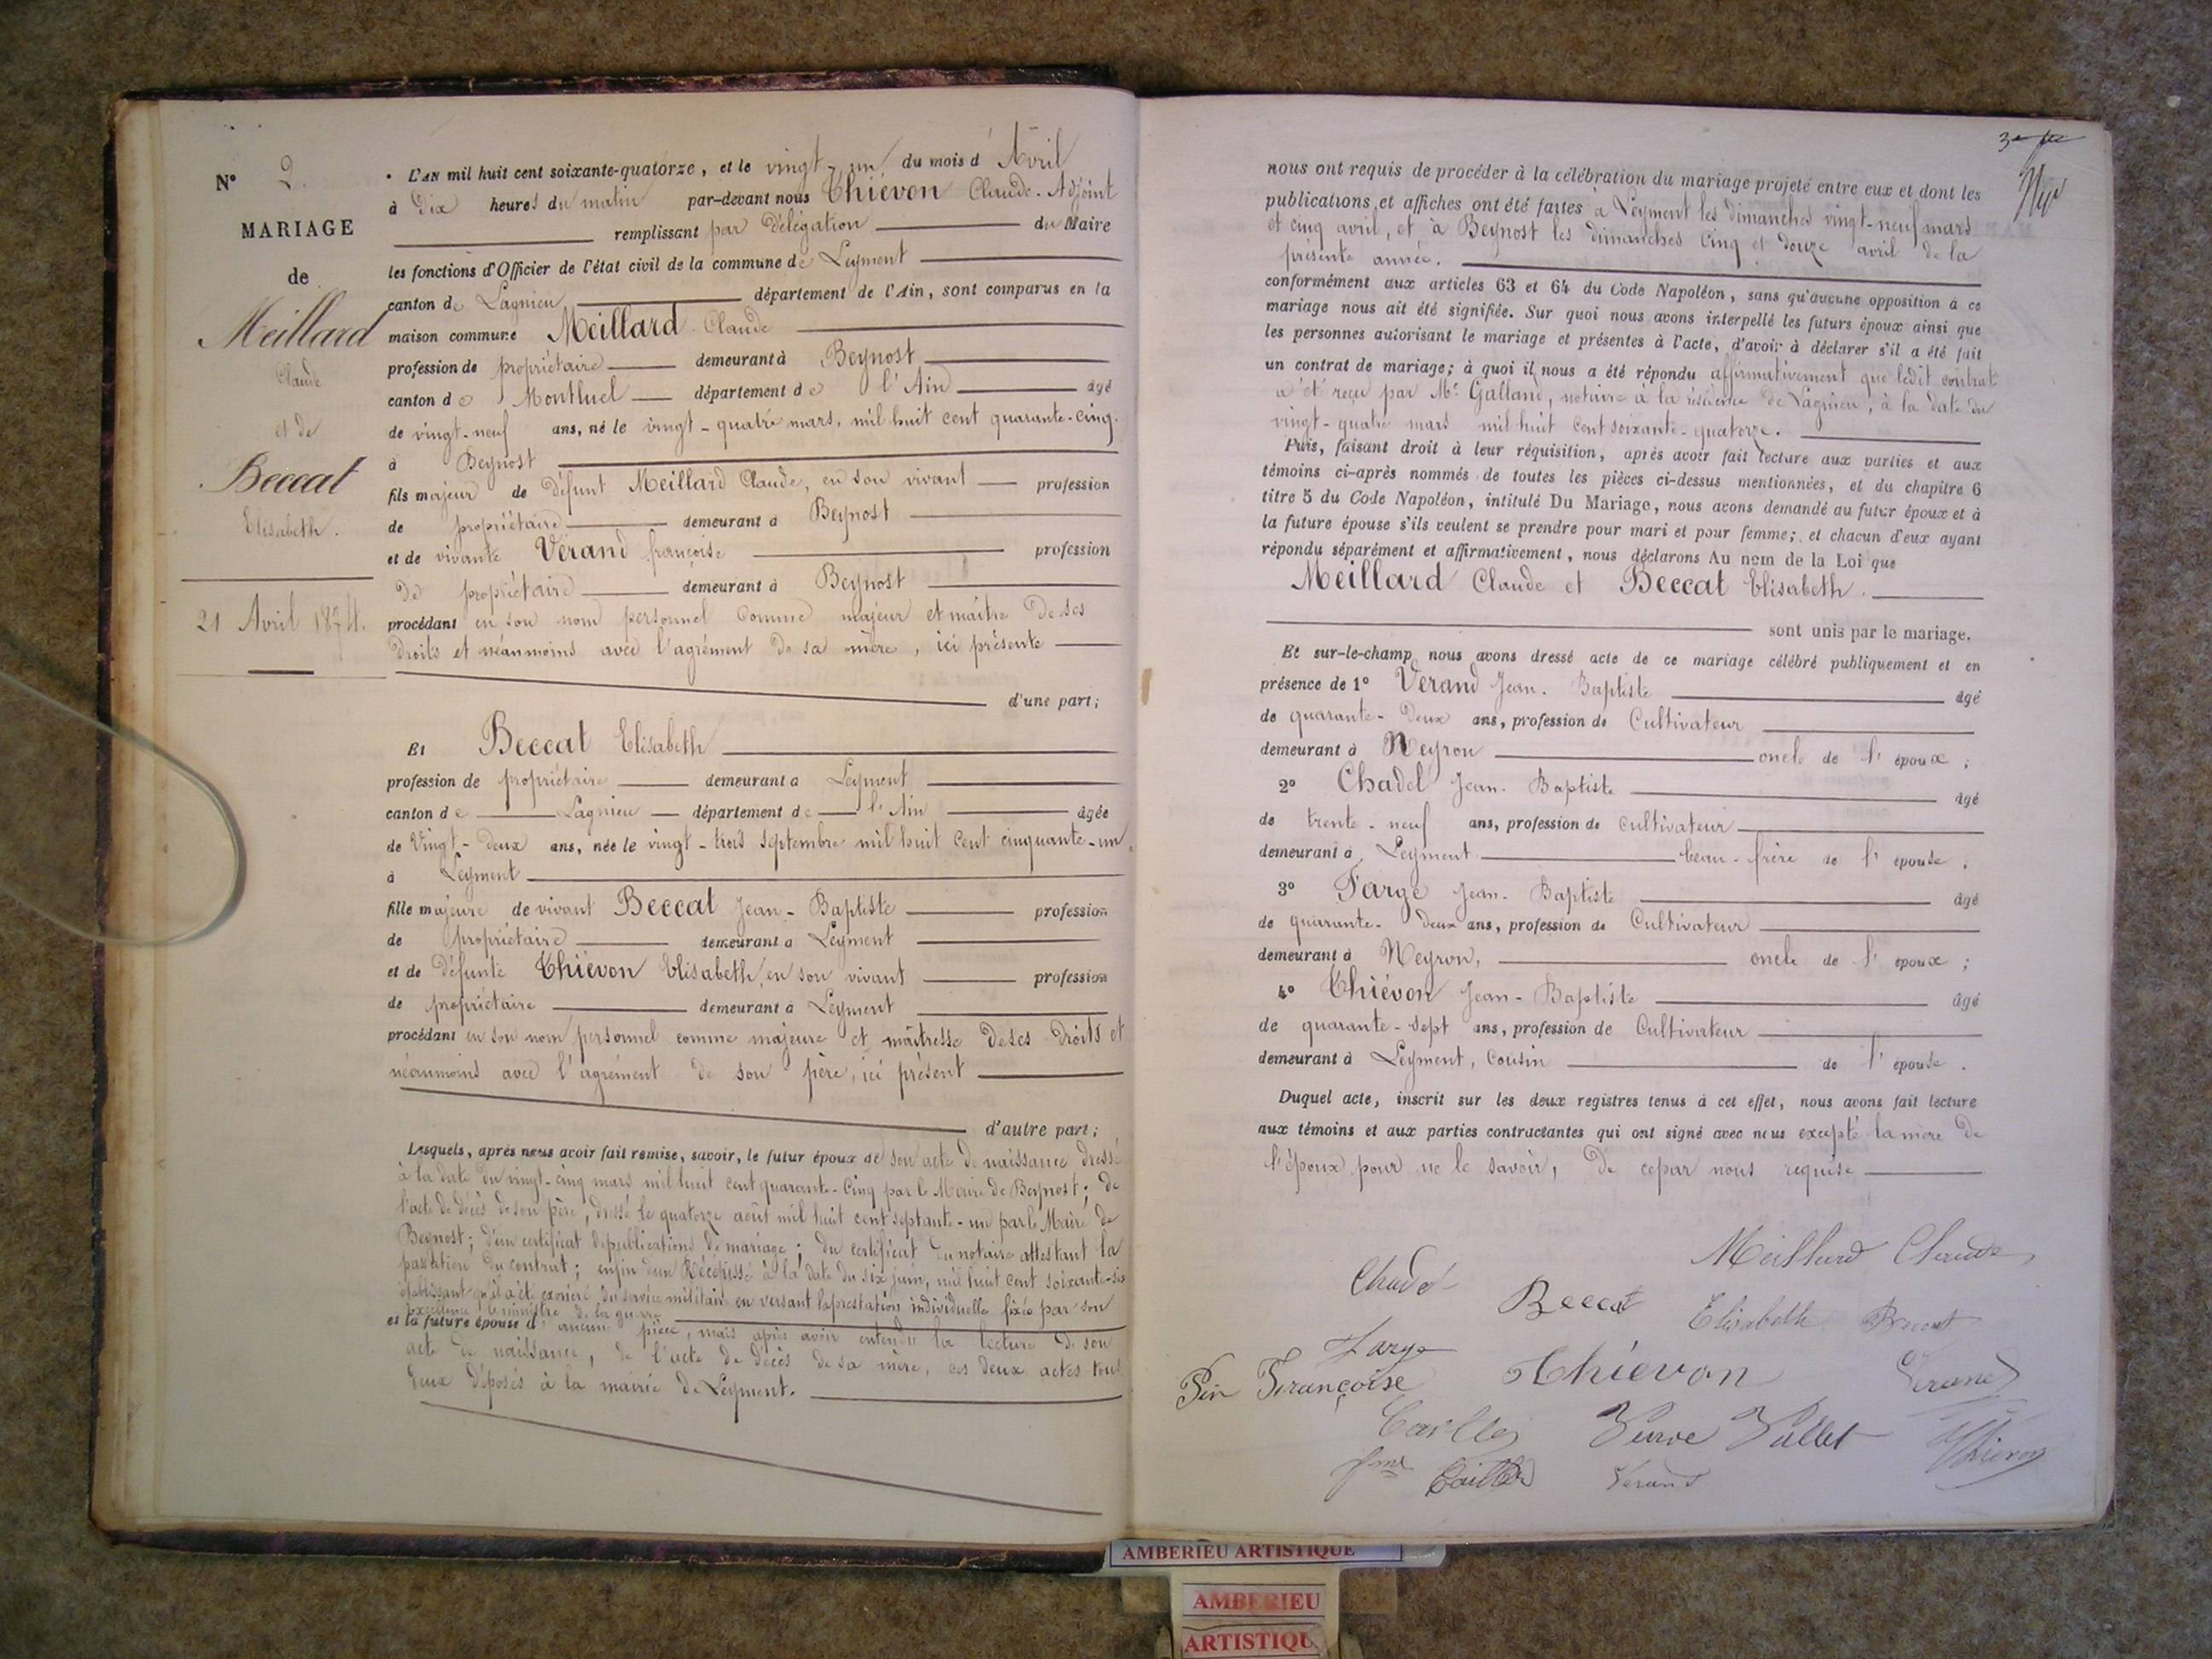 N° 2.
MARIAGE
de
Meillard
Claude
et de
Beccat
Elisabeth.
21 Avril 1874.
L'AN mil huit cent soixante-quatorze, et le vingt-un du mois d'Avril
à Dix heures du matin par-devant nous Thiévon Claude-Adjoint
remplissant par délégation du Maire
les fonctions d'Officier de l'état civil de la commune de Leyment
canton de Lagnieu département de l'Ain, sont comparus en la
maison commune Meillard Claude
profession de propriétaire demeurant à Beynost
canton de Montluel département de l'Ain âgé
de vingt-neuf ans, né le vingt-quatre mars, mil huit cent quarante-cinq.
à Beynost
fils majeur de défunt Meillard Claude, en son vivant profession
de propriétaire demeurant à Beynost
et de vivante Vérand françoise profession
de propriétaire demeurant à Beynost
procédant en son nom personnel comme majeur et maître de ses
droits et néanmoins avec l'agrément de sa mère, ici présente
d'une part;
Et Beccat Elisabeth
profession de propriétaire demeurant à Leyment
canton de Lagnieu département de l'Ain âgée
de Vingt-deux ans, née le vingt-trois septembre mil huit cent cinquante-un,
à Leyment
fille majeure de vivant Beccat Jean-Baptiste profession
de propriétaire demeurant à Leyment
et de défunte Thiévon Elisabeth, en son vivant profession
de propriétaire demeurant à Leyment
procédant en son nom personnel comme majeure et maîtresse de ses droits et
néanmoins avec l'agrément de son père, ici présent
d'autre part;
Lesquels, après nous avoir fait remise, savoir, le futur époux de son acte de naissance dressé
à la date du vingt-cinq mars mil huit cent quarante-cinq par le Maire de Beynost; de
l'acte de décès de son père, dressé le quatorze août mil huit cent septante-un par le Maire de
Beynost; d'un certificat de publications de mariage; du certificat du notaire attestant la
passation du contrat; enfin d'un Récépissé à la date du six juin, mil huit cent soixante-six
établissant qu'il a été exonéré du service militaire en versant la prestation individuelle fixée par son
excellence le ministre de la guerre
et la future épouse d'aucune pièce, mais après avoir entendu la lecture de son
acte de naissance, de l'acte de décès de sa mère, ces deux actes tous
deux déposés à la mairie de Leyment.
nous ont requis de procéder à la célébration du mariage projeté entre eux et dont les
publications et affiches ont été faites à Leyment les dimanches vingt-neuf mars
et cinq avril, et à Beynost les dimanches cinq et douze avril de la
présente année.
conformément aux articles 63 et 64 du Code Napoléon, sans qu'aucune opposition à ce
mariage nous ait été signifiée. Sur quoi nous avons interpellé les futurs époux ainsi que
les personnes autorisant le mariage et présentes à l'acte, d'avoir à déclarer s'il a été fait
un contrat de mariage; à quoi il nous a été répondu affirmativement que ledit contrat
a été reçu par Me Galland, notaire à la résidence de Lagnieu, à la date du
vingt-quatre mars mil huit cent soixante-quatorze.
Puis, faisant droit à leur réquisition, après avoir fait lecture aux parties et aux
témoins ci-après nommés de toutes les pièces ci-dessus mentionnées, et du chapitre 6
titre 5 du Code Napoléon, intitulé Du Mariage, nous avons demandé au futur époux et à
la future épouse s'ils veulent se prendre pour mari et pour femme; et chacun d'eux ayant
répondu séparément et affirmativement, nous déclarons Au nom de la Loi que
Meillard Claude et Beccat Elisabeth.
sont unis par le mariage.
Et sur-le-champ nous avons dressé acte de ce mariage célébré publiquement et en
présence de 1° Vérand Jean-Baptiste âgé
de quarante-deux ans, profession de Cultivateur
demeurant à Neyron oncle de l'époux;
2° Chadel Jean-Baptiste âgé
de trente-neuf ans, profession de Cultivateur
demeurant à Leyment beau-frère de l'épouse;
3° Farge Jean-Baptiste âgé
de quarante-deux ans, profession de Cultivateur
demeurant à Neyron, oncle de l'époux;
4° Thiévon Jean-Baptiste âgé
de quarante-sept ans, profession de Cultivateur
demeurant à Leyment, Cousin de l'épouse.
Duquel acte, inscrit sur les deux registres tenus à cet effet, nous avons fait lecture
aux témoins et aux parties contractantes qui ont signé avec nous excepté la mère de
l'époux pour ne le savoir, de ce par nous requise
Meillard Claude
Chadel
Beccat Elisabeth Beccat
Farge
Pin Françoise Thievon Verand
Veuve Vullet Thievon
Verand
AMBERIEU ARTISTIQUE
AMBERIEU
ARTISTIQU